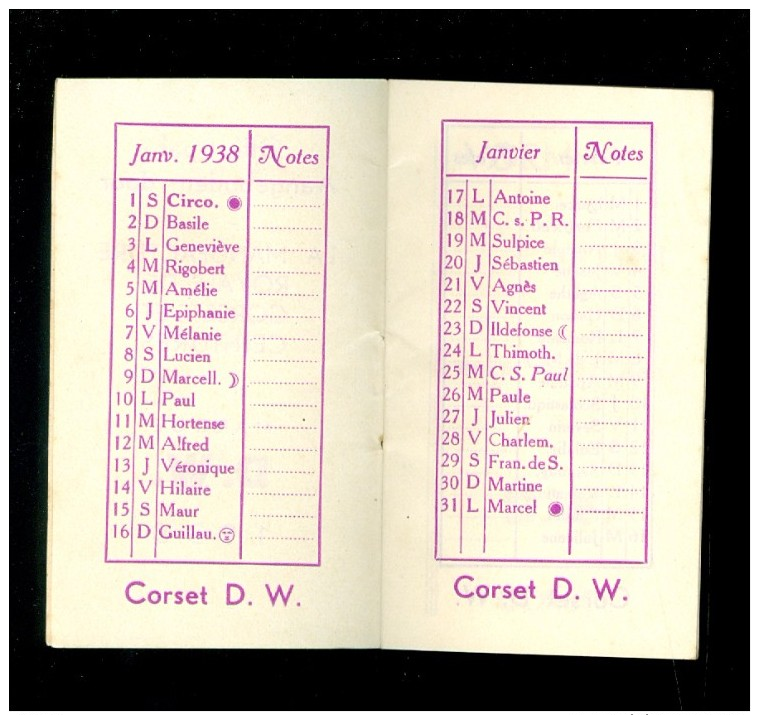 Janv. 1938 Notes
1 S Circo.
2 D Basile
3 L Geneviève
4 M Rigobert
5 M Amélie
6 J Epiphanie
7 V Mélanie
8 S Lucien
9 D Marcell.
10 L Paul
11 M Hortense
12 M Alfred
13 J Véronique
14 V Hilaire
15 S Maur
16 D Guillau.
Corset D. W.
Janvier Notes
17 L Antoine
18 M C. s. P. R.
19 M Sulpice
20 J Sébastien
21 V Agnès
22 S Vincent
23 D Ildefonse
24 L Thimoth.
25 M C. S. Paul
26 M Paule
27 J Julien
28 V Charlem.
29 S Fran. de S.
30 D Martine
31 L Marcel
Corset D. W.